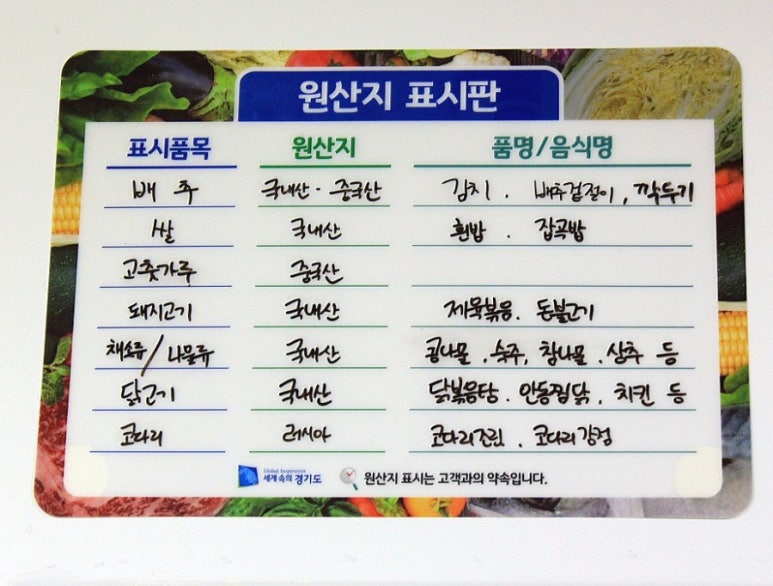 원산지 표시판
표시품목 원산지 품명/음식명
배추 국내산 · 중국산 김치 . 배추겉절이 , 깍두기
쌀 국내산 흰밥 . 잡곡밥
고춧가루 중국산
돼지고기 국내산 제육볶음 . 돈불고기
채소류/나물류 국내산 콩나물 . 숙주 . 참나물 . 상추 등
닭고기 국내산 닭볶음탕 . 안동찜닭 . 치킨 등
코다리 러시아 코다리조림 . 코다리강정
Global Inspiration
세계 속의 경기도 원산지 표시는 고객과의 약속입니다.